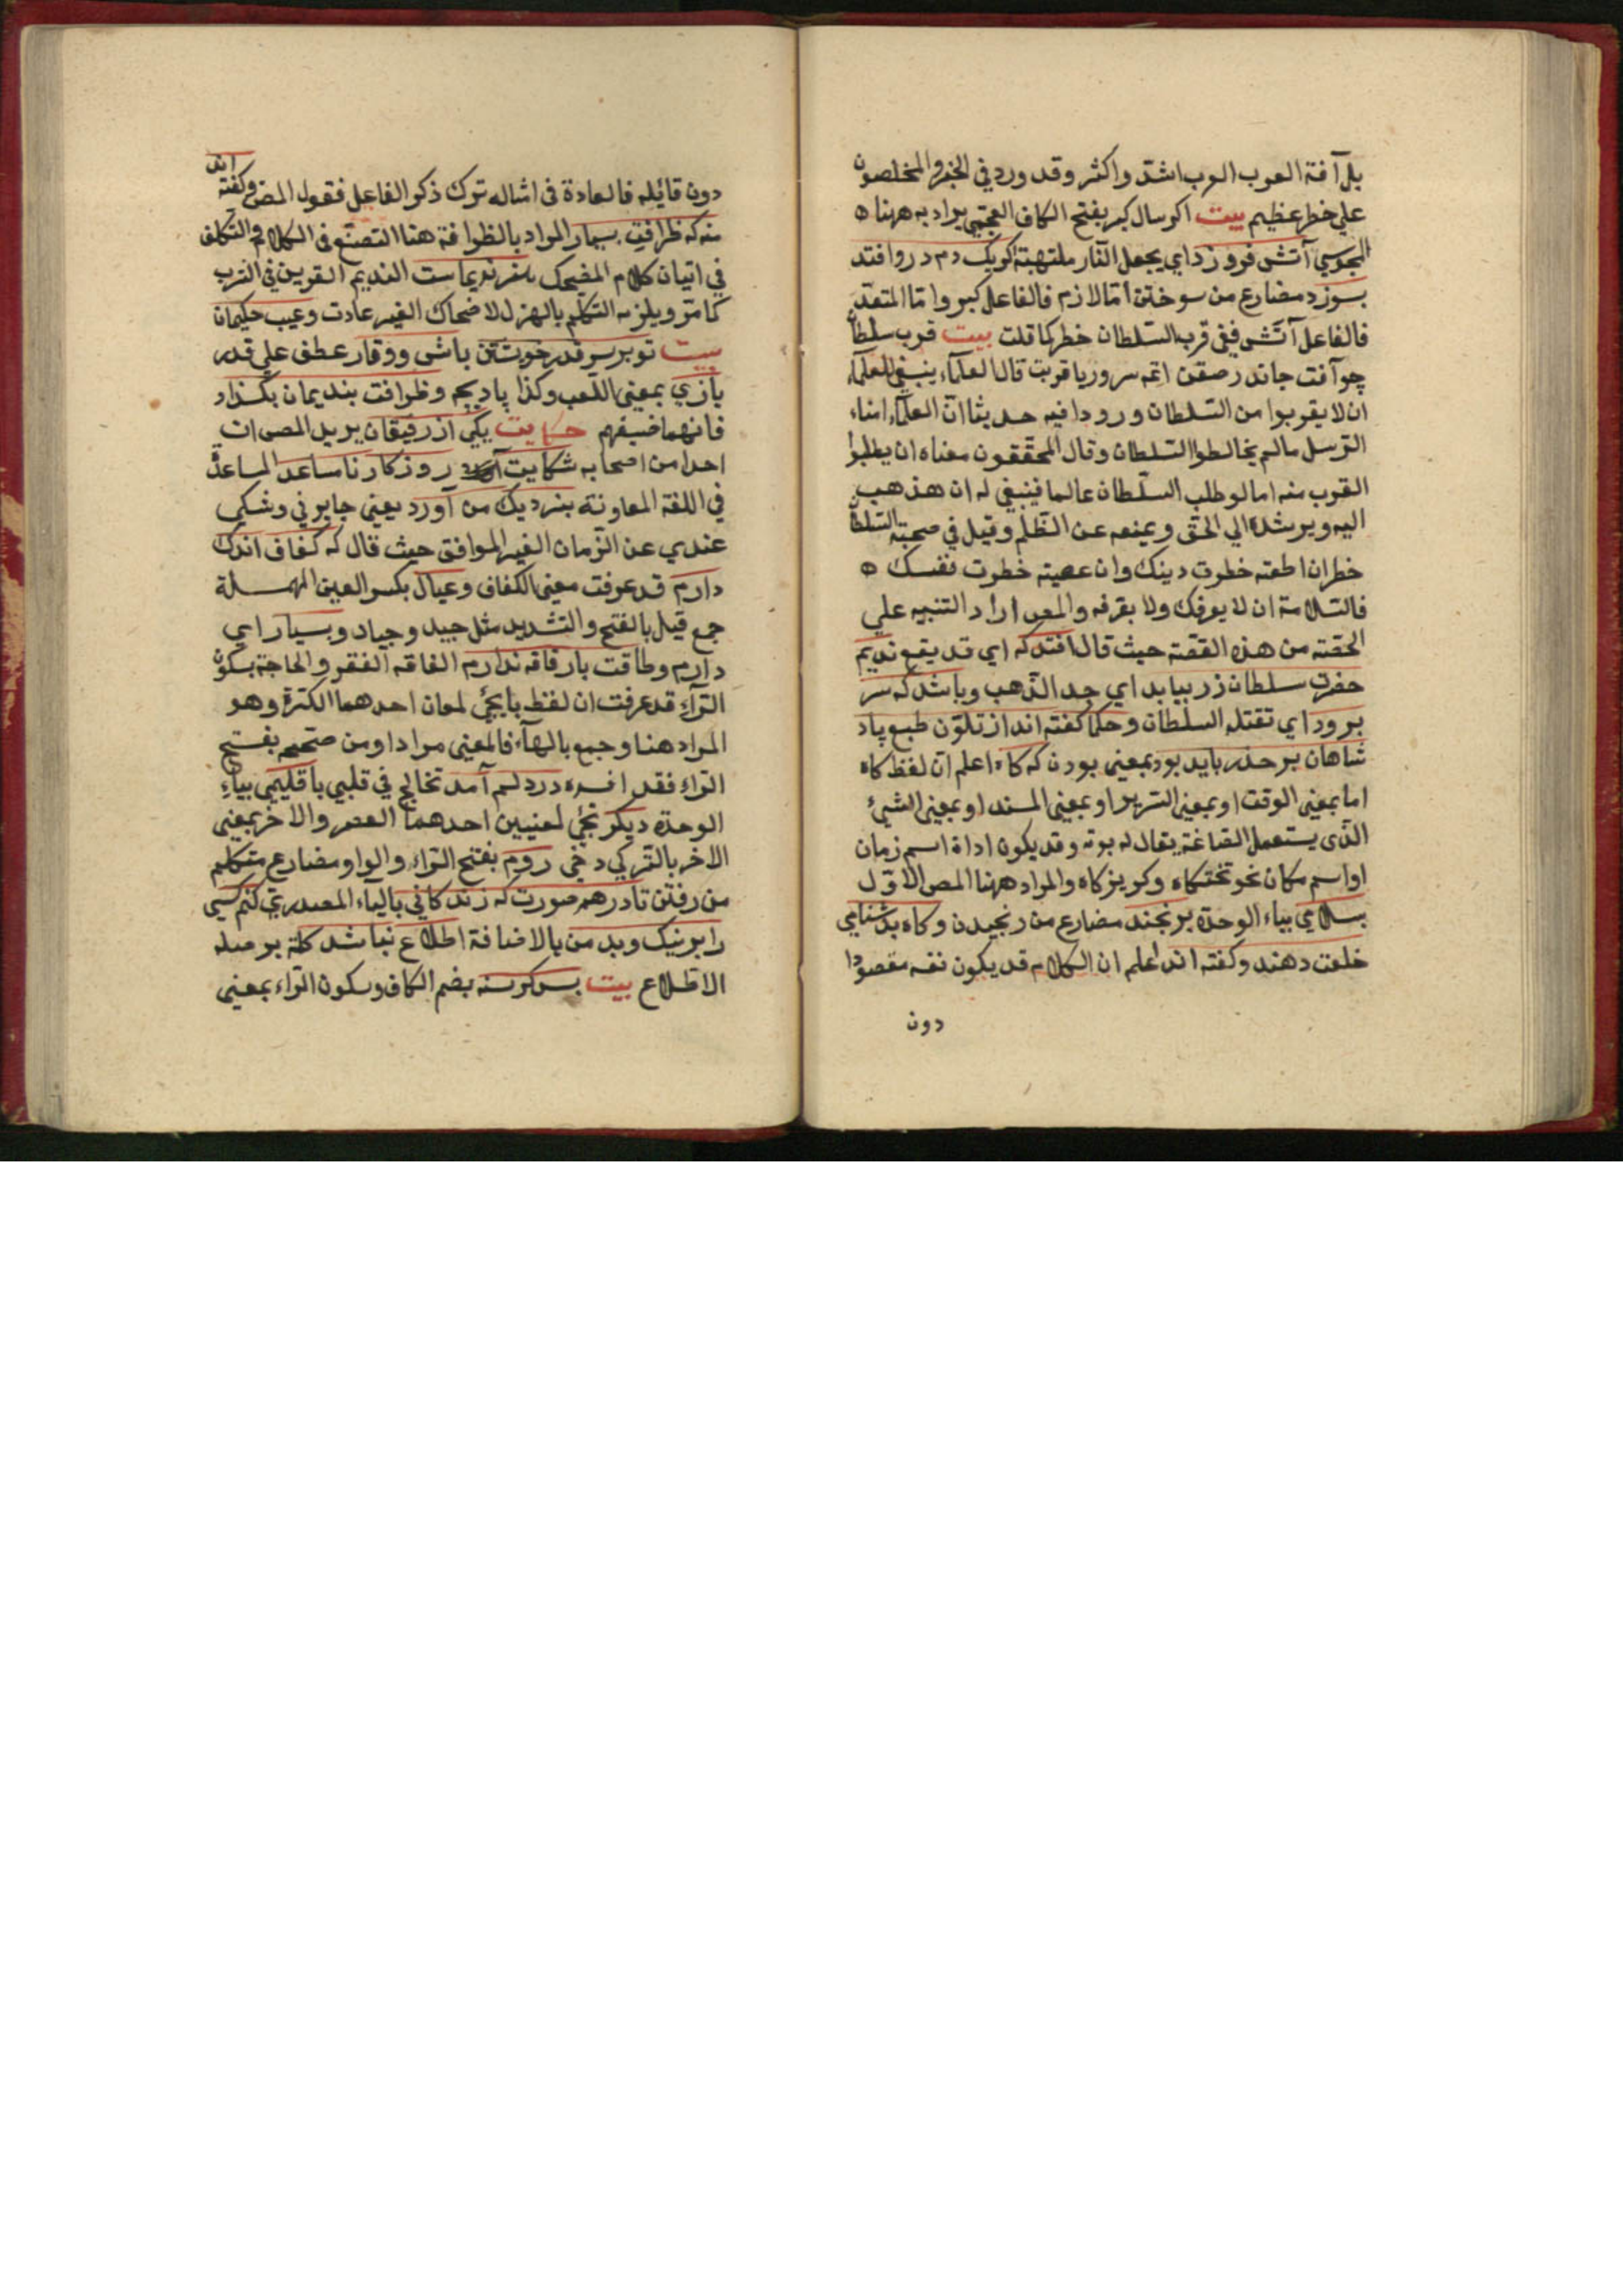 بل آفة القرب القرب اشد واكثر وقد ورد في الخبر والمخلصون
علي خطر عظيم بيت اكر سال كبر بفتح الكاف العجمي يراد به ههنا ه
المجوسي آتش فروزد اي يجعل النار ملتهبة اكر يك دم درو افتد
بسوزد مضارع من سوختن امّا لازم فالفاعل كبر وامّا المتعد
فالفاعل آتش ففي قرب السّلطان خطر كما قلت بيت قرب سلطان
چو آفت جاند قال العلمآء ينبغي للعلمآء
ان لا يقربوا من السّلطان وروردا فيه حديثا انّ العلمآء امناء
الرّسل مالم يخالطوا السّلطان وقال المحقّقون معناه ان يطلبوا
القرب منه اما لو طلب السّلطان عالما فينبغي له ان هذهب
اليه ويرشده الي الحقّ ويمنعه عن الظّلم وقيل في صحبة السّلطان
خطران اطعته خطرت دينك وان عصيته خطرت نفسك ه
فالسّلامة ان لا يعرفك ولا بعرفه والمص اراد التنبيه علي
الحصّة من هذه القصّة حيث قال افتد كه اي قد يقع نديم
حضرت سلطان زر بيابد اي جد الذّهب وباشد كه سر
برود اي تقتله السلطان وحكما كفته اند از تلوّن طبع پاد
شاهان بر حذر بايد بود بمعنى بودن كه كاه اعلم انّ لفظ كاه
اما بمعنى الوقت او بمعنى السّرير او بمعنى المسند او بمعنى الشئ
الّذى يستعمل الصّاغة يقال له بوته وقد يكون اداة اسم زمان
او اسم مكان نحو تختكاه وكريزكاه والمراد ههنا المص الاوّل
بسلامي بياء الوحدة برنجند مضارع من رنجيدن وكاه بدشنامي
خلعت دهند وكفته اند اعلم ان الكلام قد يكون نفسه مقصودا
دون
دون قائله فالعادة فى امثاله ترك ذكر الفاعل فقول المص وكفته اند
منه كه ظرافت بسيار المراد بالظرافة هنا التصنّع فى الكلام والتكلّف
في اتيان كلام المضحك هنر نديماست النديم القرين في الشرب
كما مرّ ويلزمه التكلّم بالهزل لاضحاك الغير عادت وعيب حكيمان
بيت تو بر سر قدر خويشتن باش ووقار عطف علي قدر
بازي بمعنى اللعب وكذا پاد بجم وظرافت بنديمان بكذار
فانهما خسيفهم حكايت يكي از رفيقان يريد المص ان
احدا من اصحابه شكايت روزكار ناساعد المساعدة
في اللغة المعاونة بنزديك من آورد يعنى جايرني وشكي
عندي عن الزّمان الغير الموافق حيث قال كه كفاف اندك
دارم قد عرفت معنى الكفاف وعيال بكسر العين المهملة
جمع قيل بالفتح والتشديد مثل جيد وجياد وبسيار اي
دارم وطاقت بار فاقه ندارم الفاقه الفقر والحاجة بسكون
الرّآء قد عرفت ان لفظ بار يجئ لمعان احدهما الكثرة وهو
المراد هنا وجمع بالهآء فالمعنى مرادا ومن صحّحه بفتح
الرّاء فقد افسده در دلم آمد تخالج في قلبي باقليمي بياء
الوحدة ديكر يجئ لمعنيين احدهما العصر والاخر بمعنى
الاخر بالتركي دخي روم بفتح الرّاء والواو مضارع متكلم
من رفتن تا در هر صورت كه زندكاني بالياء المصدري كنم كسي
را بر نيك وبد من بالاضافة اطلاع نباشد كلمة بر صلة
الاطلاع بيت بس كرسنه بضم الكاف وسكون الرّاء بمعنى